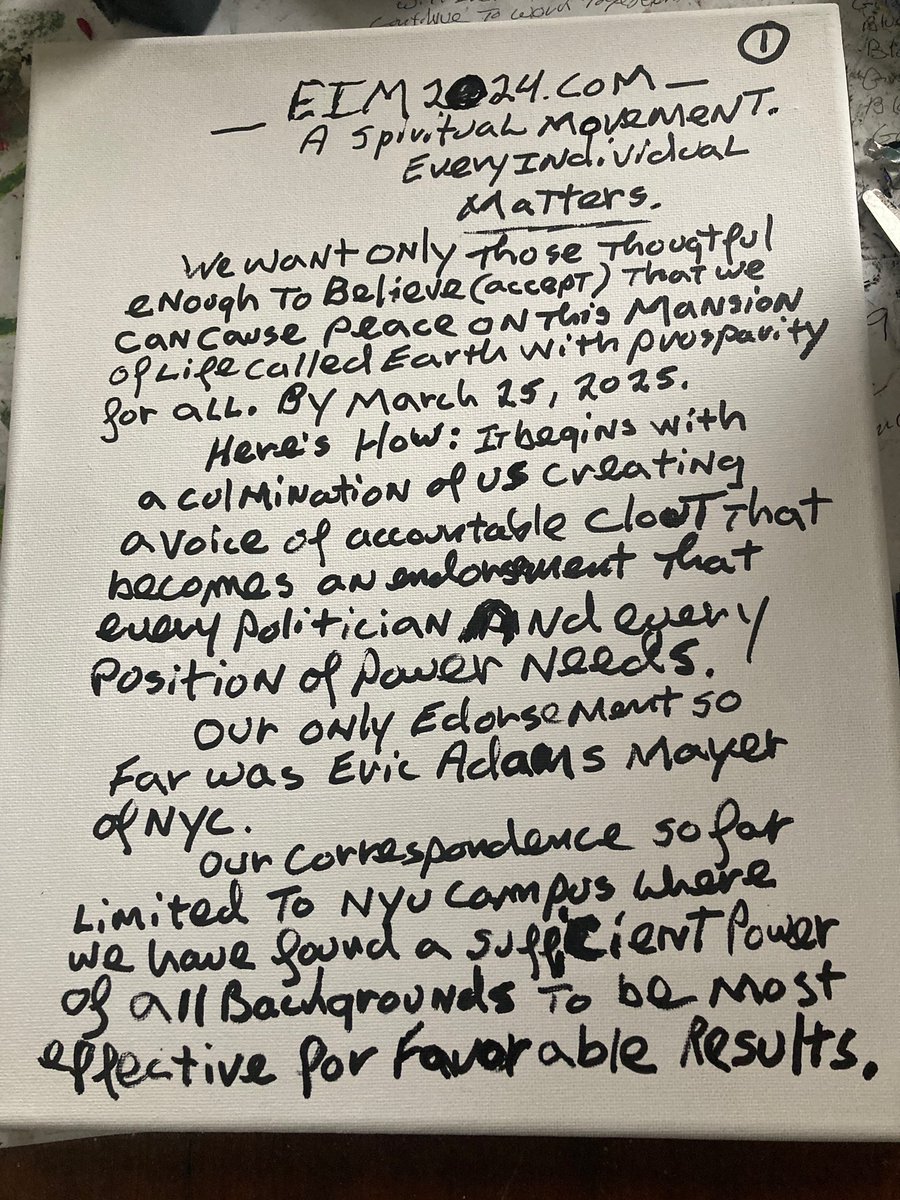 ①
— EIM2024.COM —
A Spiritual Movement.
Every Individual
Matters.
We want only Those Thougtful
enough To Believe (accept) That we
can cause peace on this Mansion
of Life called Earth with prosparity
for all. By March 25, 2025.
Here's How: It begins with
a culmination of us creating
a voice of accountable Clout That
becomes an endorsement that
every politician And every
Position of Power Needs.
Our only Edorsement so
Far was Eric Adams Mayer
of NYC.
Our Correspondence so far
Limited To NYU Campus where
we have found a sufficient Power
of all Backgrounds To be most
effective for Favorable Results.